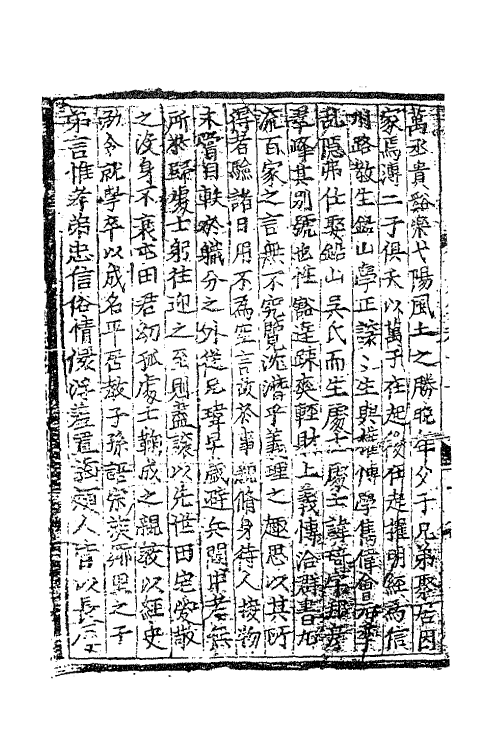 萬丞貴谿樂弋陽風土之勝晚年夕于兄弟聚居因
家焉溥二子俱夭以萬子在起後在起擢明經為信
州路教生鉛山學正諒諒生與權博學雋偉會元季
亂隱弗仕娶鉛山吳氏而生處士處士諱
群峰其別號也性豁達疎爽輕財上義博洽群書九
流百家之言無不究覽沈潛乎義理之趣思以其所
得者驗諸日用不為空言故於事親脩身待人接物
未嘗自軼於職分之外從兄瑋早歲避兵閩中老無
所於歸處士躬往迎之至則盡讓以先世田宅愛敬
之沒身不衰 田君幼孤處士鞠成之親授以經史
勗令就學卒以成名平居教子孫語宗族鄉里之子
弟言惟孝弟忠信俗情儇浮羞置通頰人皆以長